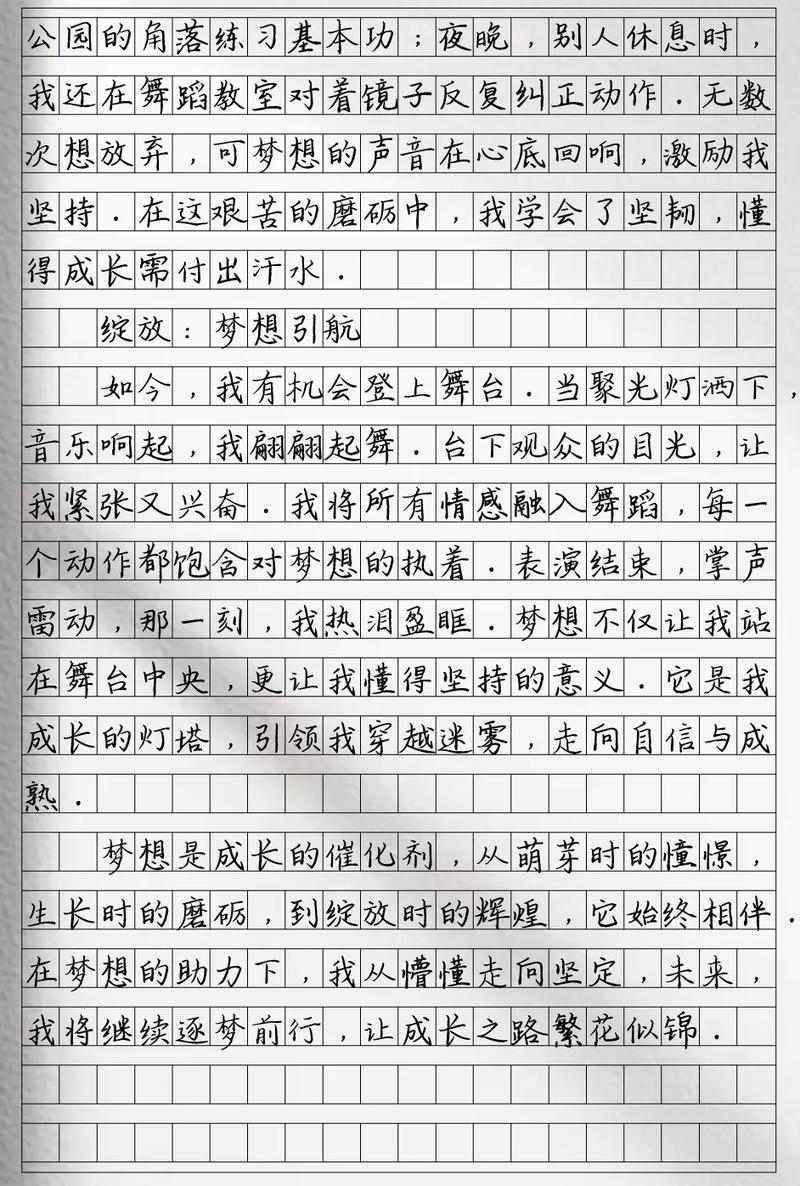 公园的角落练习基本功；夜晚，别人休息时，
我还在舞蹈教室对着镜子反复纠正动作．无数
次想放弃，可梦想的声音在心底回响，激励我
坚持．在这艰苦的磨砺中，我学会了坚韧，懂
得成长需付出汗水．
绽放：梦想引航
如今，我有机会登上舞台．当聚光灯洒下，
音乐响起，我翩翩起舞．台下观众的目光，让
我紧张又兴奋．我将所有情感融入舞蹈，每一
个动作都饱含对梦想的执着．表演结束，掌声
雷动，那一刻，我热泪盈眶．梦想不仅让我站
在舞台中央，更让我懂得坚持的意义．它是我
成长的灯塔，引领我穿越迷雾，走向自信与成
熟．
梦想是成长的催化剂，从萌芽时的憧憬，
生长时的磨砺，到绽放时的辉煌，它始终相伴．
在梦想的助力下，我从懵懂走向坚定，未来，
我将继续逐梦前行，让成长之路繁花似锦．